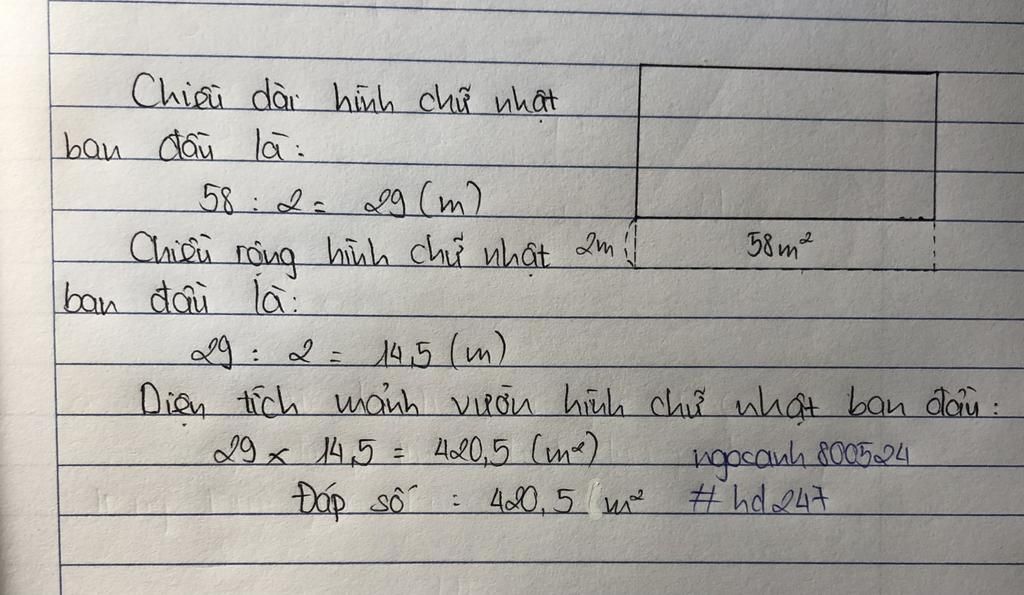 Chiều dài hình chữ nhật
ban đầu là:
58 : 2 = 29 (m)
Chiều rộng hình chữ nhật
ban đầu là:
2m
58m²
29 : 2 = 14,5 (m)
Diện tích mảnh vườn hình chữ nhật ban đầu:
29 x 14,5 = 420,5 (m²)
ngocanh800524
Đáp số : 420,5 m²
#hd247